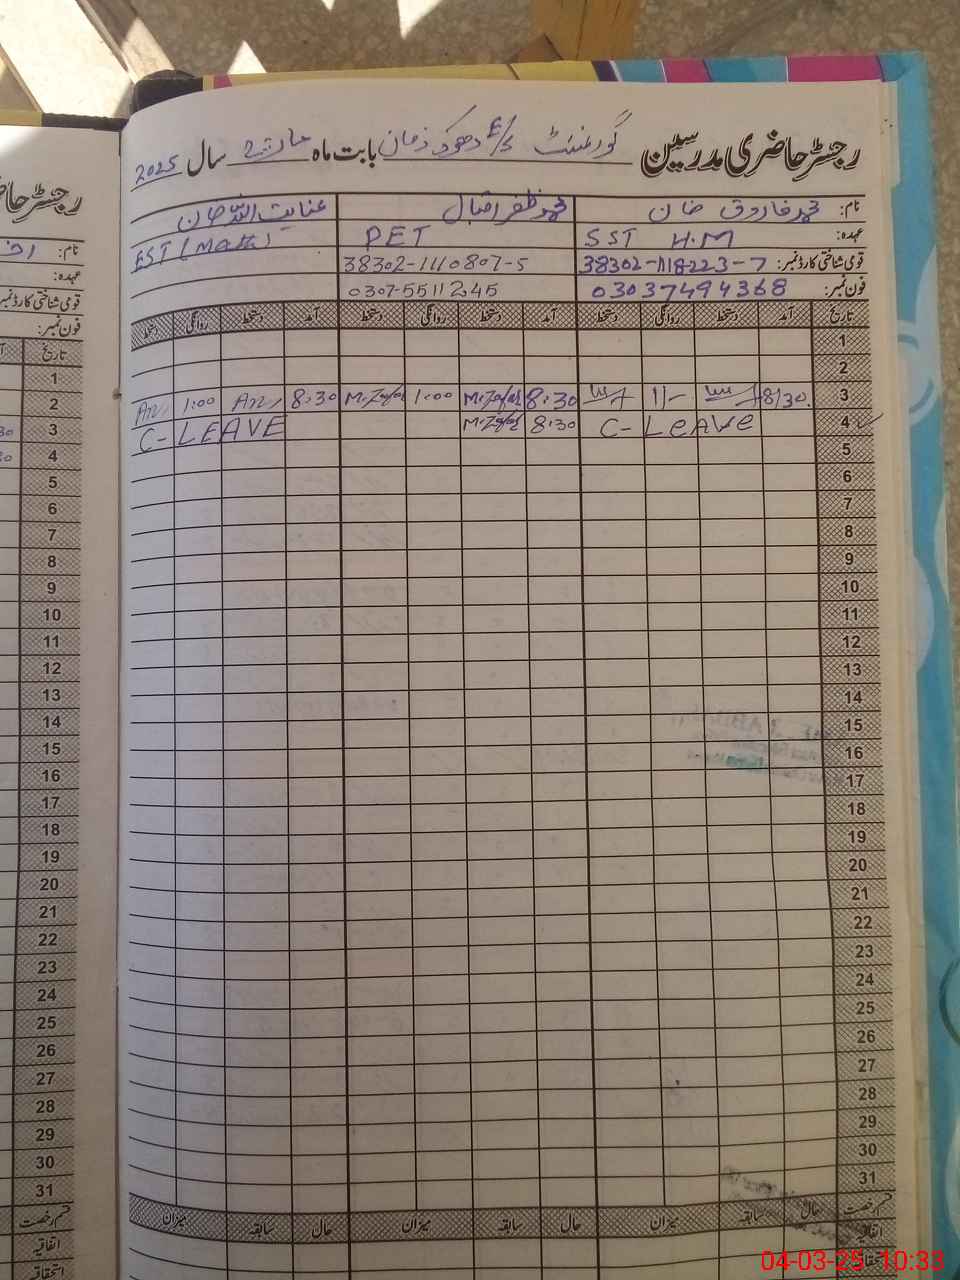 رجسٹر حاضری مدرسین گورنمنٹ E/S ڈھوک زمان بابت ماہ مارچ سال 2025
نام: محمد فاروق خان محمد ظفر اقبال عنایت اللہ خان
عہدہ: SST H.M PET EST (Math)
قومی شناختی کارڈ نمبر: 38302-1118223-7 38302-1110807-5
فون نمبر: 03037494368 0307-5511245
تاریخ آمد دستخط روانگی دستخط آمد دستخط روانگی دستخط آمد دستخط روانگی دستخط
1
2
3 8/30 1/- 8:30 M.Zafar 1:00 M.Zafar 8:30 1:00
4 C- LEAVE 8:30 M.Zafar C- LEAVE
5
6
7
8
9
10
11
12
13
14
15
16
17
18
19
20
21
22
23
24
25
26
27
28
29
30
31
قسم رخصت حال سابقہ میزان حال سابقہ میزان حال سابقہ میزان
اتفاقیہ
رجسٹر
نام:
عہدہ:
قومی شناختی کارڈ نمبر
فون نمبر:
تاریخ
1
2
3
4
5
6
7
8
9
10
11
12
13
14
15
16
17
18
19
20
21
22
23
24
25
26
27
28
29
30
31
قسم رخصت
اتفاقیہ
استحقاقیہ
04-03-25 10:33